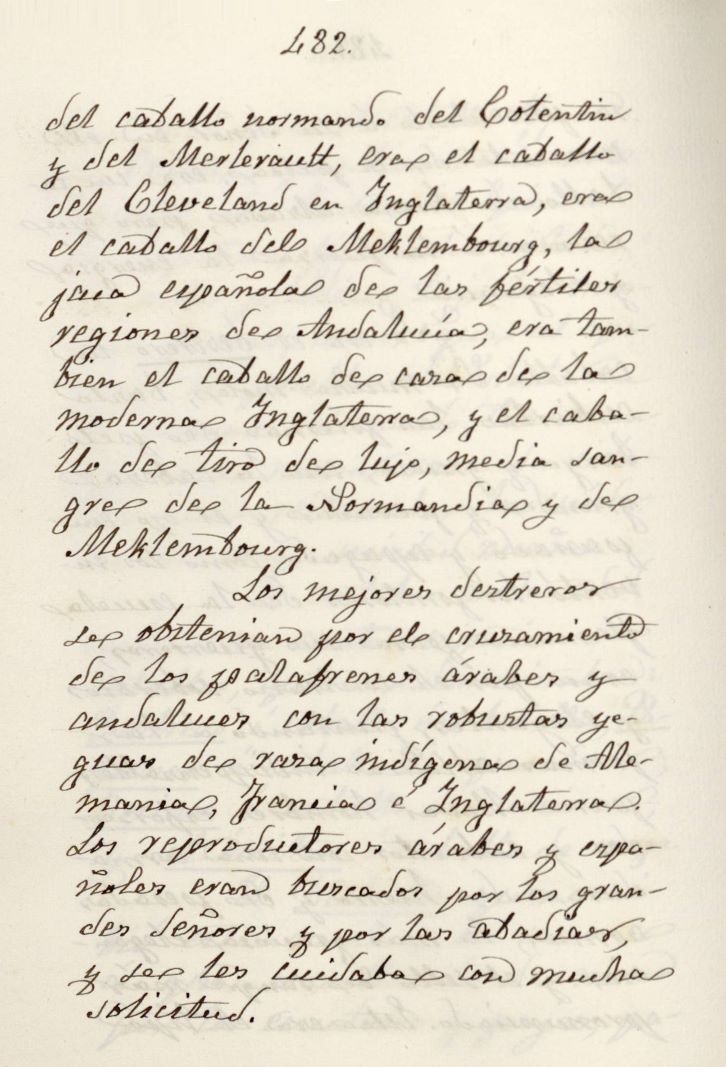 482.
del caballo normando del Cotentin
y del Merlerault, era el caballo
del Cleveland en Inglaterra, era
el caballo del Meklembourg, la
jaca española de las fértiles
regiones de Andalucía, era tam-
bien el caballo de caza de la
moderna Inglaterra, y el caba-
llo de tiro de lujo, media san-
gre de la Normandia y de
Meklembourg.
Los mejores destreros
se obstenian por el cruzamiento
de los palafrenes árabes y
andaluces con las robustas ye-
guas de raza indígena de Ale-
mania, Francia é Inglaterra.
Los reproductores árabes y espa-
ñoles eran buscados por los gran-
des señores y por las abadias,
y se les cuidaba con mucha
solicitud.